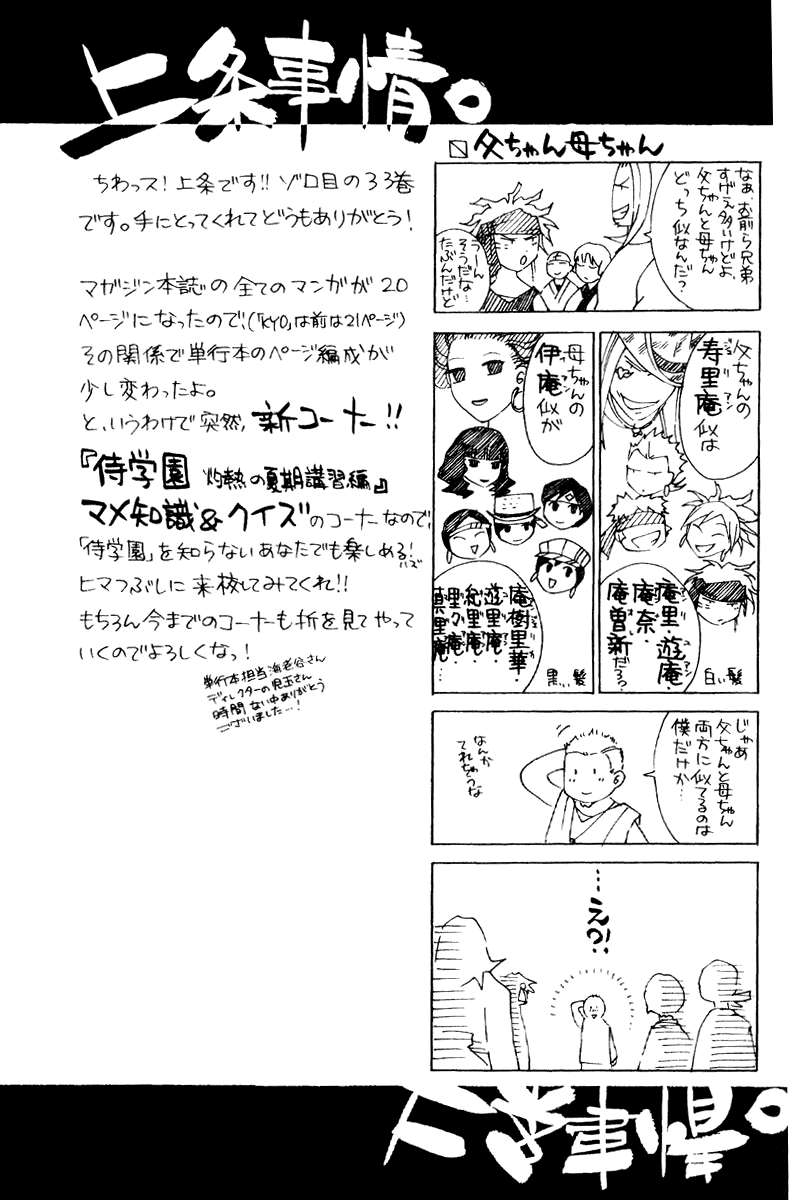 上条事情。
ちわっス!上条です!!ゾロ目の33巻
です。手にとってくれてどうもありがとう!
マガジン本誌の全てのマンガが20
ページになったので、(「KYO」は前は21ページ)
その関係で単行本のページ編成が
少し変わったよ。
と、いうわけで突然、新コーナー!!
『侍学園 灼熱の夏期講習編』
マメ知識&クイズのコーナーなので、
「侍学園」を知らないあなたでも楽しめる!
ハズ
ヒマつぶしに来校してみてくれ!!
もちろん今までのコーナーも折を見てやって
いくのでよろしくなっ!
単行本担当海老谷さん
ディレクターの児玉さん
時間ない中ありがとう
ございました…!
父ちゃん母ちゃん
なぁ、お前ら兄弟
すげえ多いけどよ、
父ちゃんと母ちゃん
どっち似なんだ?
うーん
そうだな…
たぶんだけど
父ちゃんの
寿里庵似は
ジュリアン
庵里・遊庵・
庵奈・
庵曽新だろ?
白い髪
母ちゃんの
伊庵似が
イアン
庵樹里華・
遊里庵・
紀里庵・
里々庵・
真里庵
黒い髪
じゃあ
父ちゃんと母ちゃん
両方に似てるのは
僕だけか…
なんか
てれちゃうな
……え?!
上条事情。